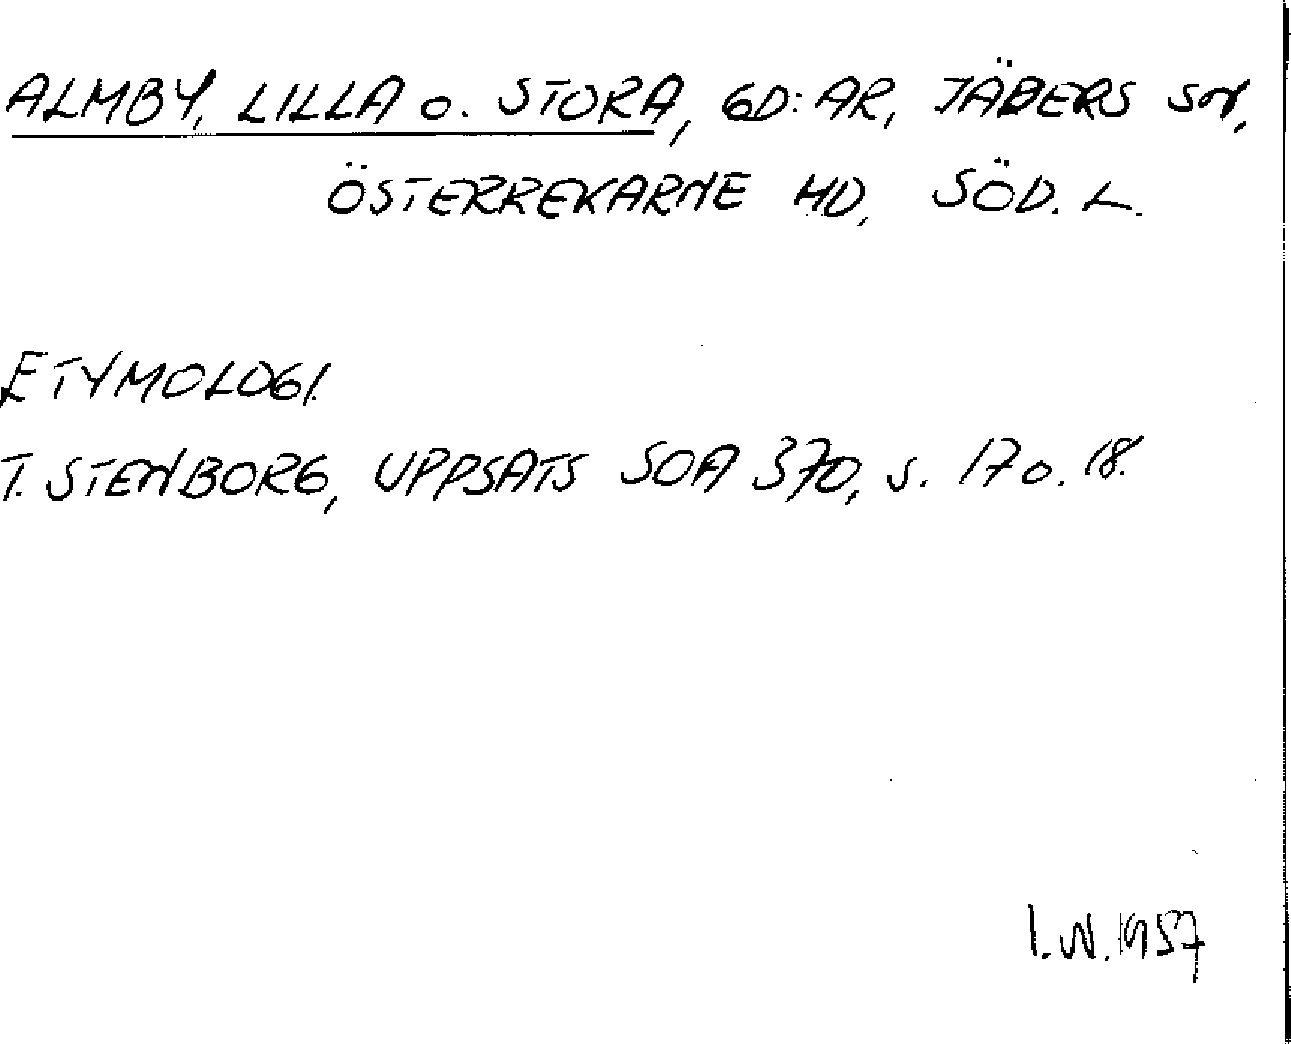 ALMBY, LILLA o. STORA, GD:AR, JÄDERS SN,
ÖSTERREKARNE HD, SÖD. L.
ETYMOLOGI.
T. STENBORG, UPPSATS SOA 370, s. 17 o. 18.
I.W. 1957